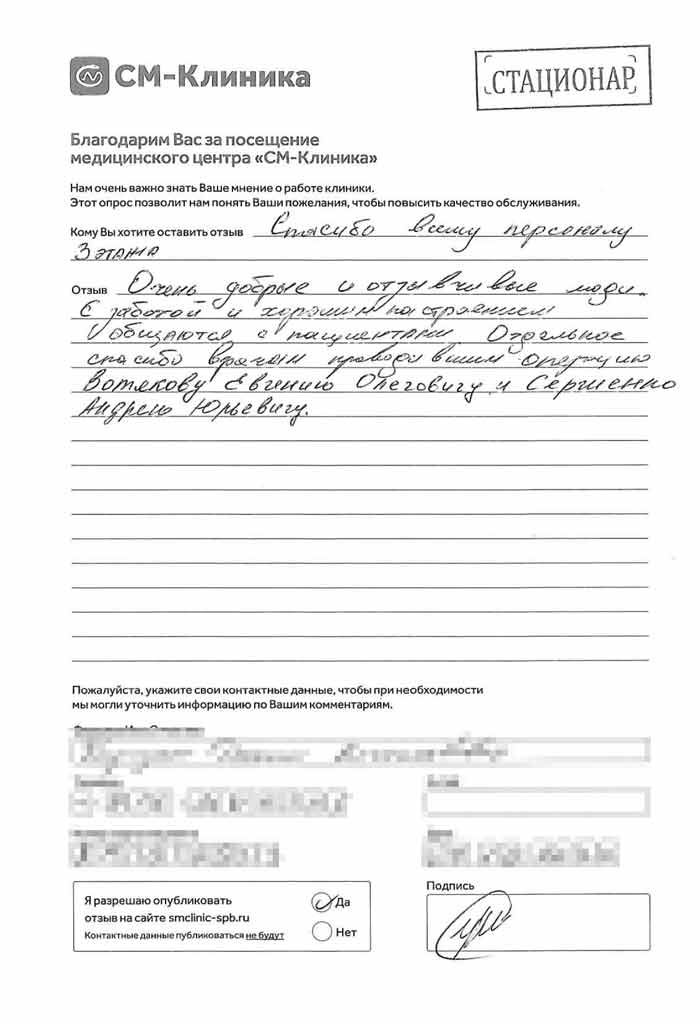 СМ-Клиника
СТАЦИОНАР
Благодарим Вас за посещение
медицинского центра «СМ-Клиника»
Нам очень важно знать Ваше мнение о работе клиники.
Этот опрос позволит нам понять Ваши пожелания, чтобы повысить качество обслуживания.
Кому Вы хотите оставить отзыв Спасибо всему персоналу
3 этажа
Отзыв Очень добрые и отзывчивые люди.
С заботой и хорошим настроением
общаются с пациентами Отдельное
спасибо врачам проводившим операцию
Вотякову Евгению Олеговичу и Сергиенко
Андрею Юрьевичу.
Пожалуйста, укажите свои контактные данные, чтобы при необходимости
мы могли уточнить информацию по Вашим комментариям.
Я разрешаю опубликовать
отзыв на сайте smclinic-spb.ru
Контактные данные публиковаться не будут
Да
Нет
Подпись